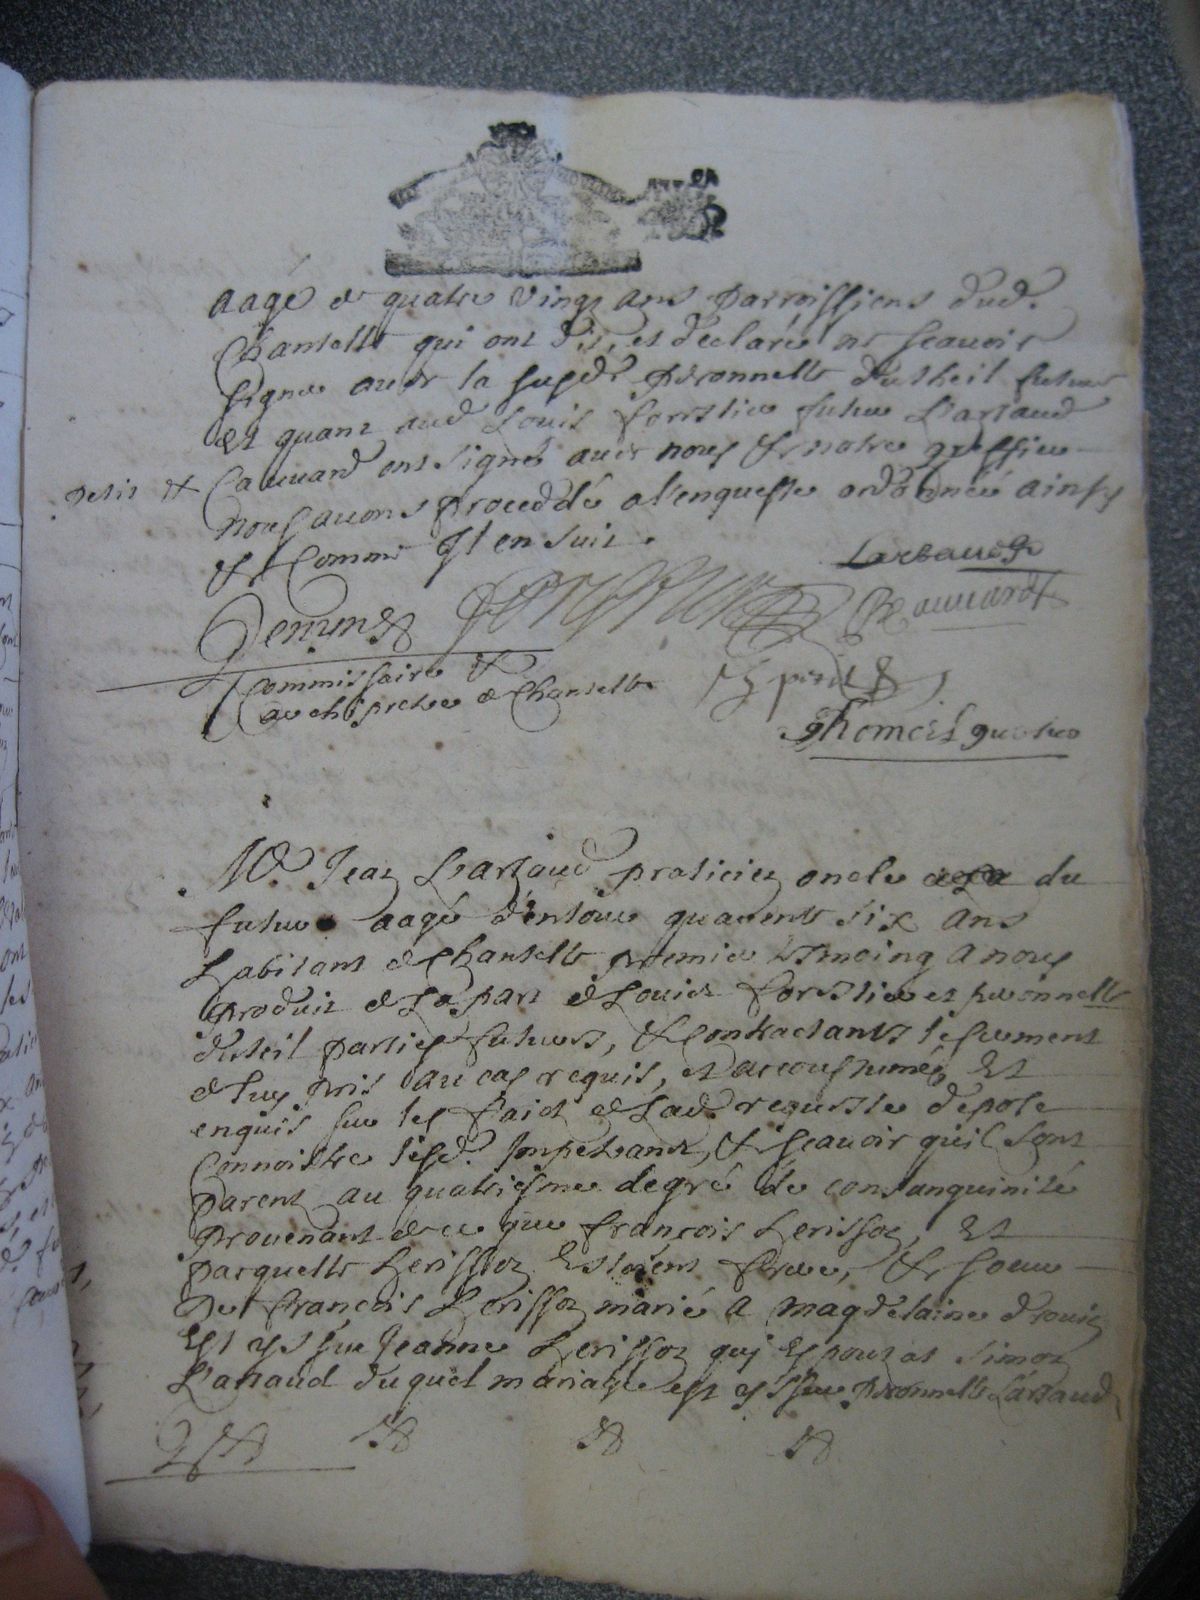 aagé de quatre vingt ans parroissiens dud.
Chantelle qui ont dit, et declaré ne scavoir
signer avec la susd. peronnelle dutheil future
et quant aud Louis forestier futur Larbaud
petit & Cauuard ont signé avec nous & notre greffier
nous avons proceddé a l'enqueste ordonnée ainsy
& Comme Il en suit.
Larbaud
Commissaire &
archiprebtre de Chantelle
petit
Me. Jean Larbaud praticien oncle du
futur aagé d'entour quarente six ans
habitant de Chantelle premier tesmoing a nous
produit de La part de Louis forestier et peronnelle
duteil parties futurs, & Contractants le serment
de luy pris au cas requis, et accoustumé, Et
enquis sur les faicts de Lad. requeste depose
Connoistre lesd. Impetrants, & scavoir qu'il sont
parent au quatriesme degré de consanguinité
Provenant de ce que françois herisson, Et
pasquelle herisson Estoient frere, & soeur
De françois herisson marié a magdelaine drouin
Est yssue Jeanne herisson qui Espouzat simon
Larbaud duquel mariage est yssue peronnelle Larbaud